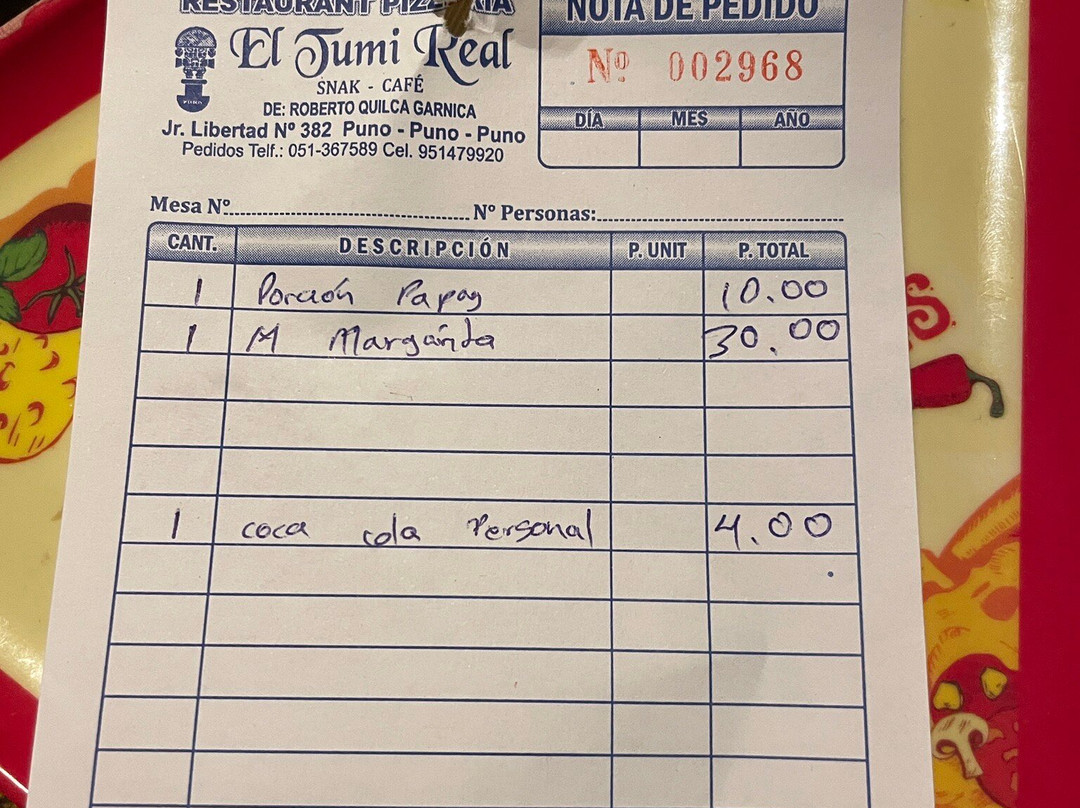 RESTAURANT PIZZERIA
El Tumi Real
SNAK - CAFÉ
DE: ROBERTO QUILCA GARNICA
Jr. Libertad Nº 382 Puno - Puno - Puno
Pedidos Telf.: 051-367589 Cel. 951479920
NOTA DE PEDIDO
Nº 002968
DÍA MES AÑO
Mesa Nº Nº Personas:
CANT. DESCRIPCIÓN P. UNIT P. TOTAL
1 Porción Papas 10.00
1 M Margarita 30.00
1 coca cola Personal 4.00